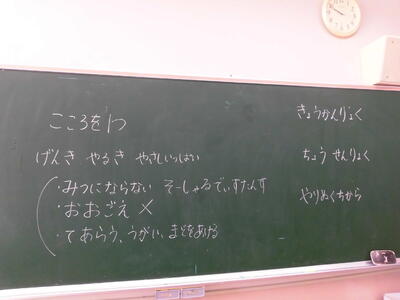 こころを1つ
げんき やるき やさしいっぱい
・みつにならない そーしゃるでぃすたんす
・おおごえ ×
・てあらい、うがい、まどをあける
きょうかんりょく
ちょうせんりょく
やりぬくちから